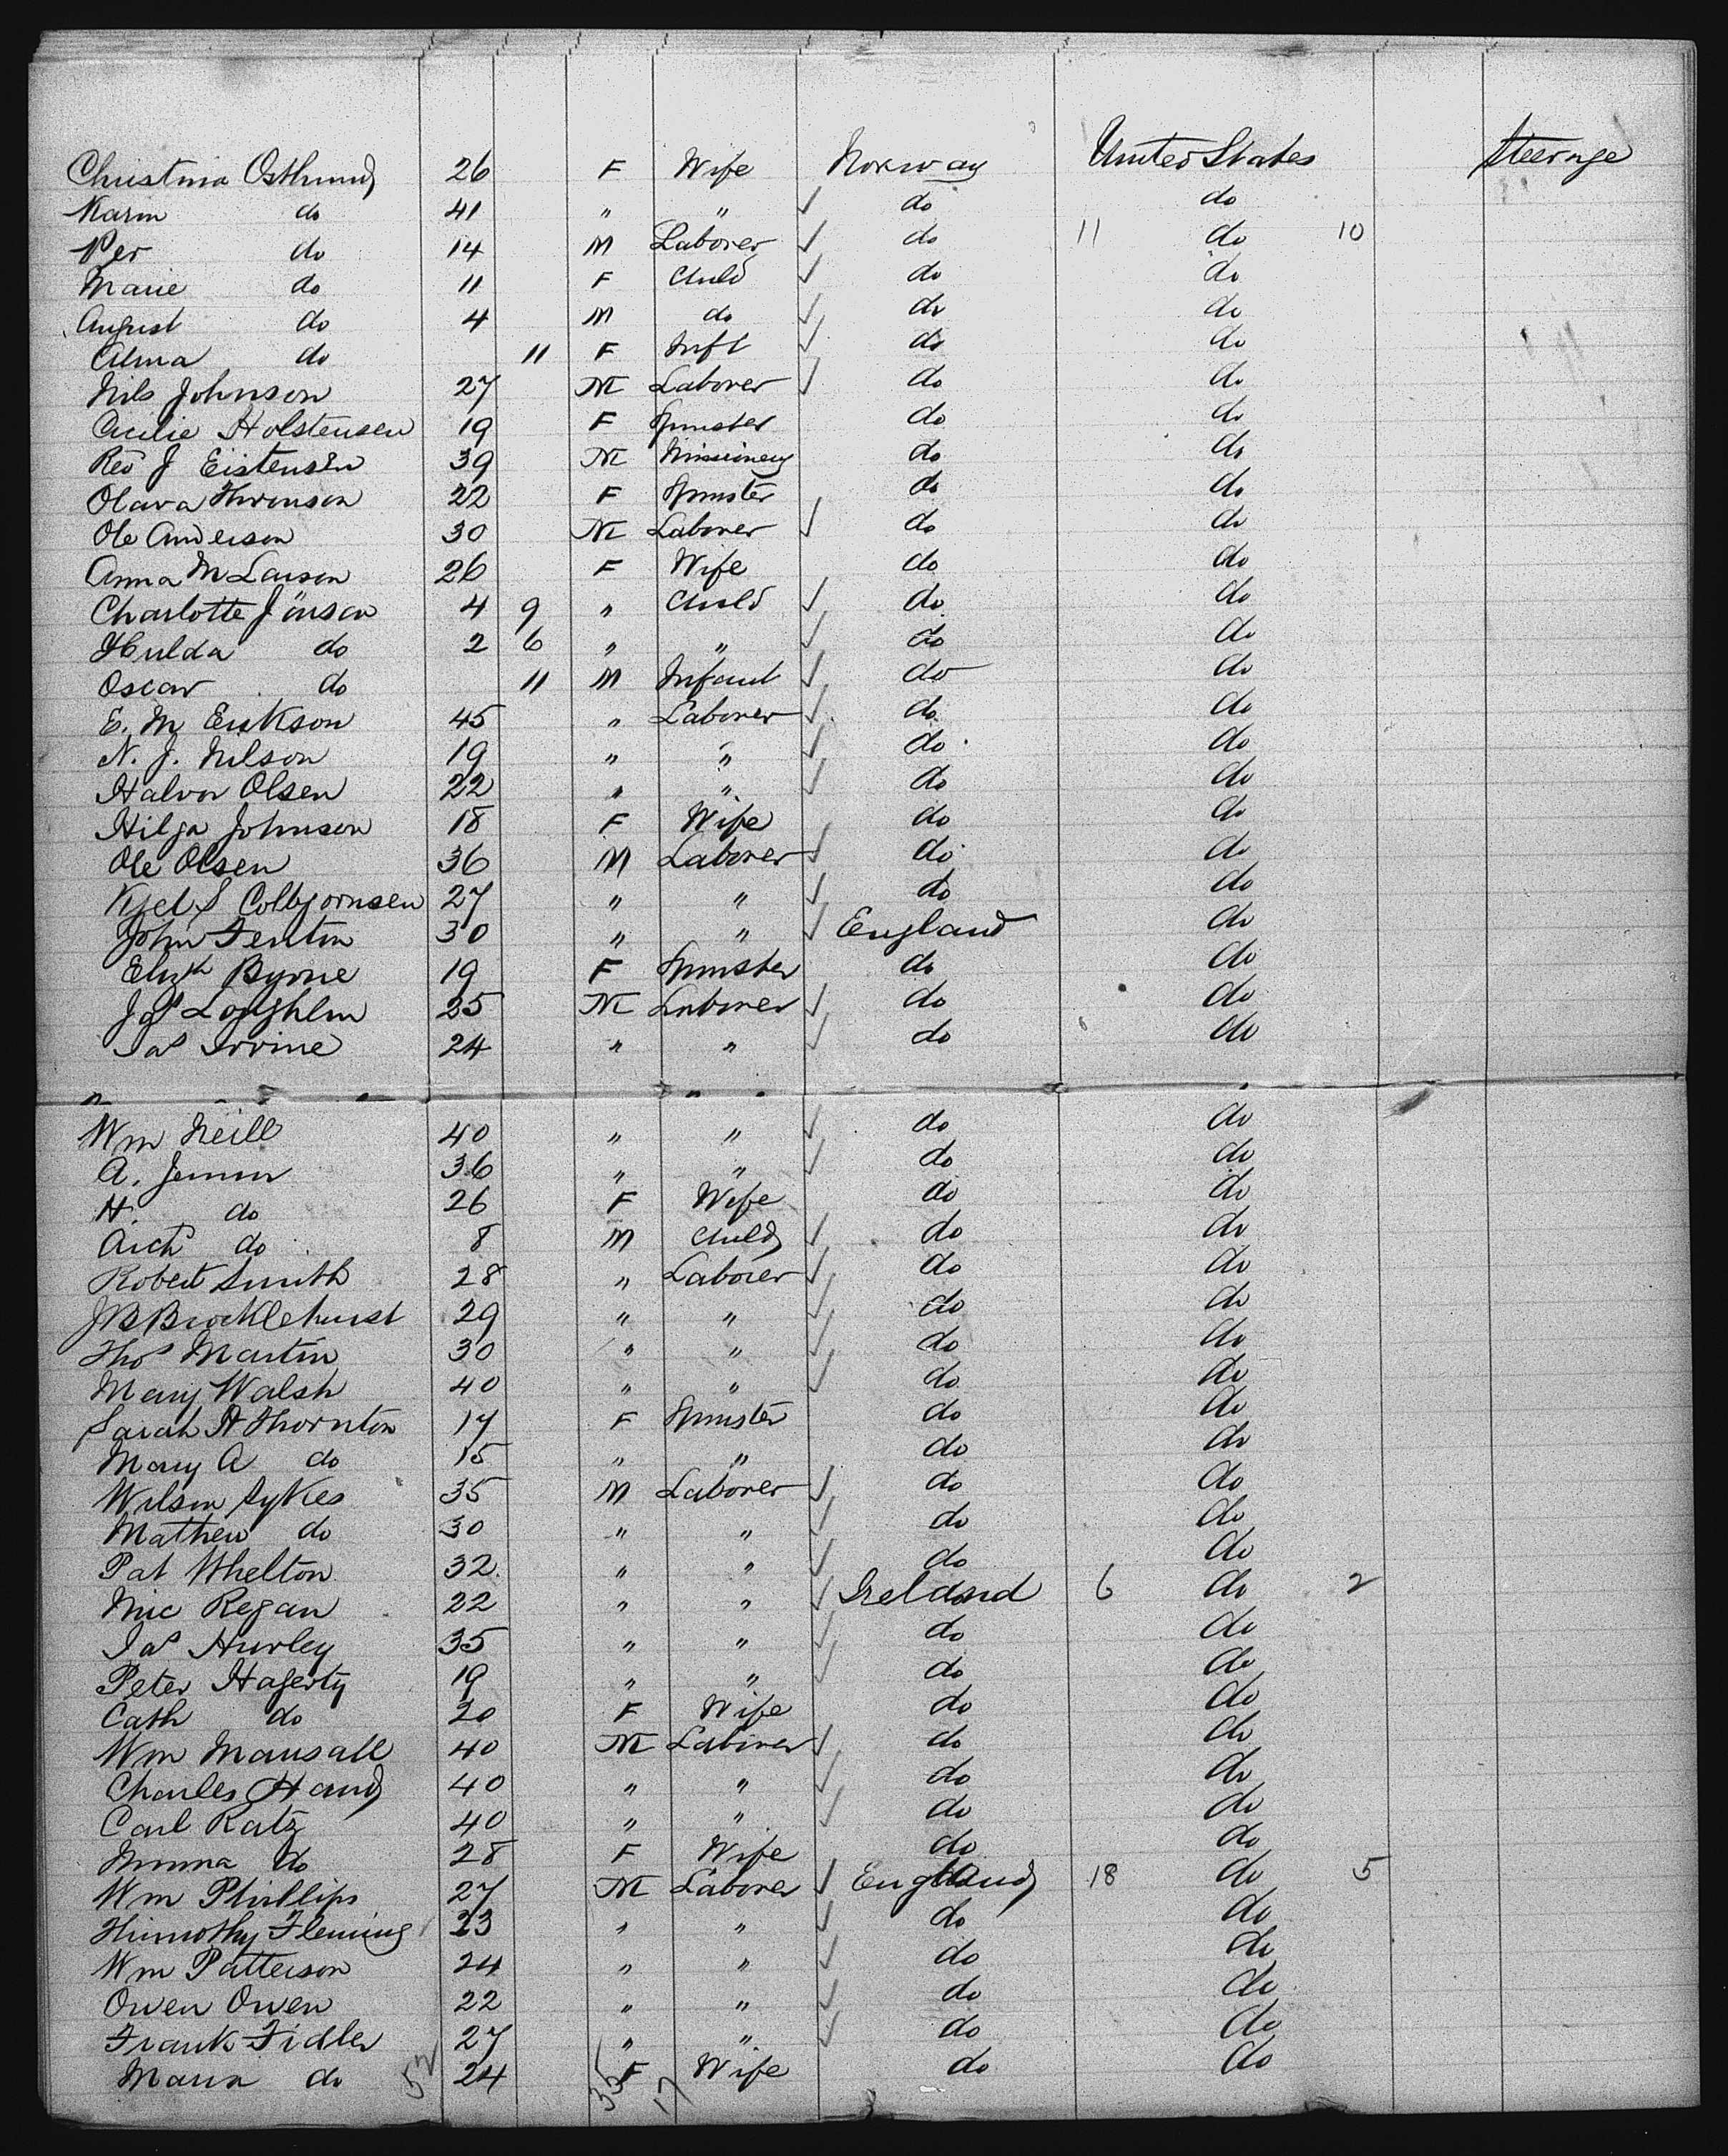 Christina Osthund 26 F Wife Norway United States Steerage
Karin do 41 " " ✓ do do
Per do 14 M Laborer ✓ do 11 do 10
Marie do 11 F Child ✓ do do
August do 4 M do ✓ do do
Alma do 11 F Inft ✓ do do
Nils Johnson 27 M Laborer ✓ do do
Cecilie Holstensen 19 F Spinster do do
Rev J Eistensen 39 M Missionery do do
Olava Thronson 22 F Spinster do do
Ole Anderson 30 M Laborer ✓ do do
Anna M Larson 26 F Wife do do
Charlotte Jönson 4 9 " Child ✓ do do
Hulda do 2 6 " " ✓ do do
Oscar do 11 M Infant ✓ do do
E. M Erikson 45 " Laborer ✓ do do
N. J. Nilson 19 " " ✓ do do
Halvor Olsen 22 " " ✓ do do
Hilga Johnson 18 F Wife do do
Ole Olsen 36 M Laborer ✓ do do
Kjel S Colbjornsen 27 " " ✓ do do
John Fenton 30 " " ✓ England do
Elizth Byrne 19 F Spinster do do
Jas Loughlin 25 M Laborer ✓ do do
Jas Irvine 24 " " ✓ do do
Wm Neill 40 " " ✓ do do
A. 36 " " ✓ do do
H. do 26 F Wife do do
Archd do 8 M Child ✓ do do
Robert Smith 28 " Laborer ✓ do do
JB Brocklehurst 29 " " ✓ do do
Thos Martin 30 " " ✓ do do
Mary Walsh 40 " " ✓ do do
Sarah A Thornton 17 F Spinster do do
Mary A do 15 " " do do
Wilson Sykes 35 M Laborer ✓ do do
Mathew do 30 " " ✓ do do
Pat Whelton 32 " " ✓ do do
Mic Regan 22 " " ✓ Ireland 6 do 2
Jas Hurley 35 " " ✓ do do
Peter Hagerty 19 " " ✓ do do
Cath do 20 F Wife do do
Wm Mansall 40 M Laborer ✓ do do
Charles Hand 40 " " ✓ do do
Carl Ratz 40 " " ✓ do do
Minna do 28 F Wife do do
Wm Phillips 27 M Laborer ✓ England 18 do 5
Thimothy Fleming 23 " " ✓ do do
Wm Patterson 24 " " ✓ do do
Owen Owen 22 " " ✓ do do
Frank Fidler 27 " " ✓ do do
Maria do 24 F Wife do do
52 35 17